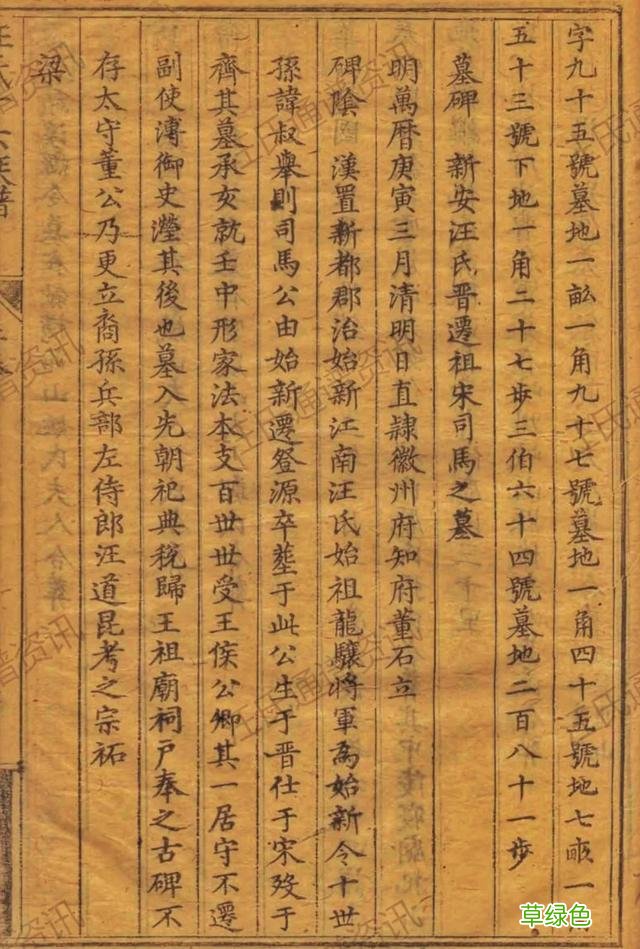 字九十五號墓地一畝一角九十七號墓地一角四十五號地七畝一
五十三號下地一角二十七步三伯六十四號墓地二百八十一步
墓碑 新安汪氏晉遷祖宋司馬之墓
明萬曆庚寅三月清明日直隸徽州府知府董石立
碑陰 漢置新都郡治始新江南汪氏始祖龍驤將軍為始新令十世
孫諱叔舉則司馬公由始新遷登源卒塟于此公生于晉仕于宋歿于
齊其墓承亥就壬中形家法本支百世世受王侯公卿其一居守不遷
副使溥御史瀅其後也墓入先朝祀典稅歸王祖廟祠户奉之古碑不
存太守董公乃更立裔孫兵部左侍郎汪道昆考之宗祏
梁
草绿色